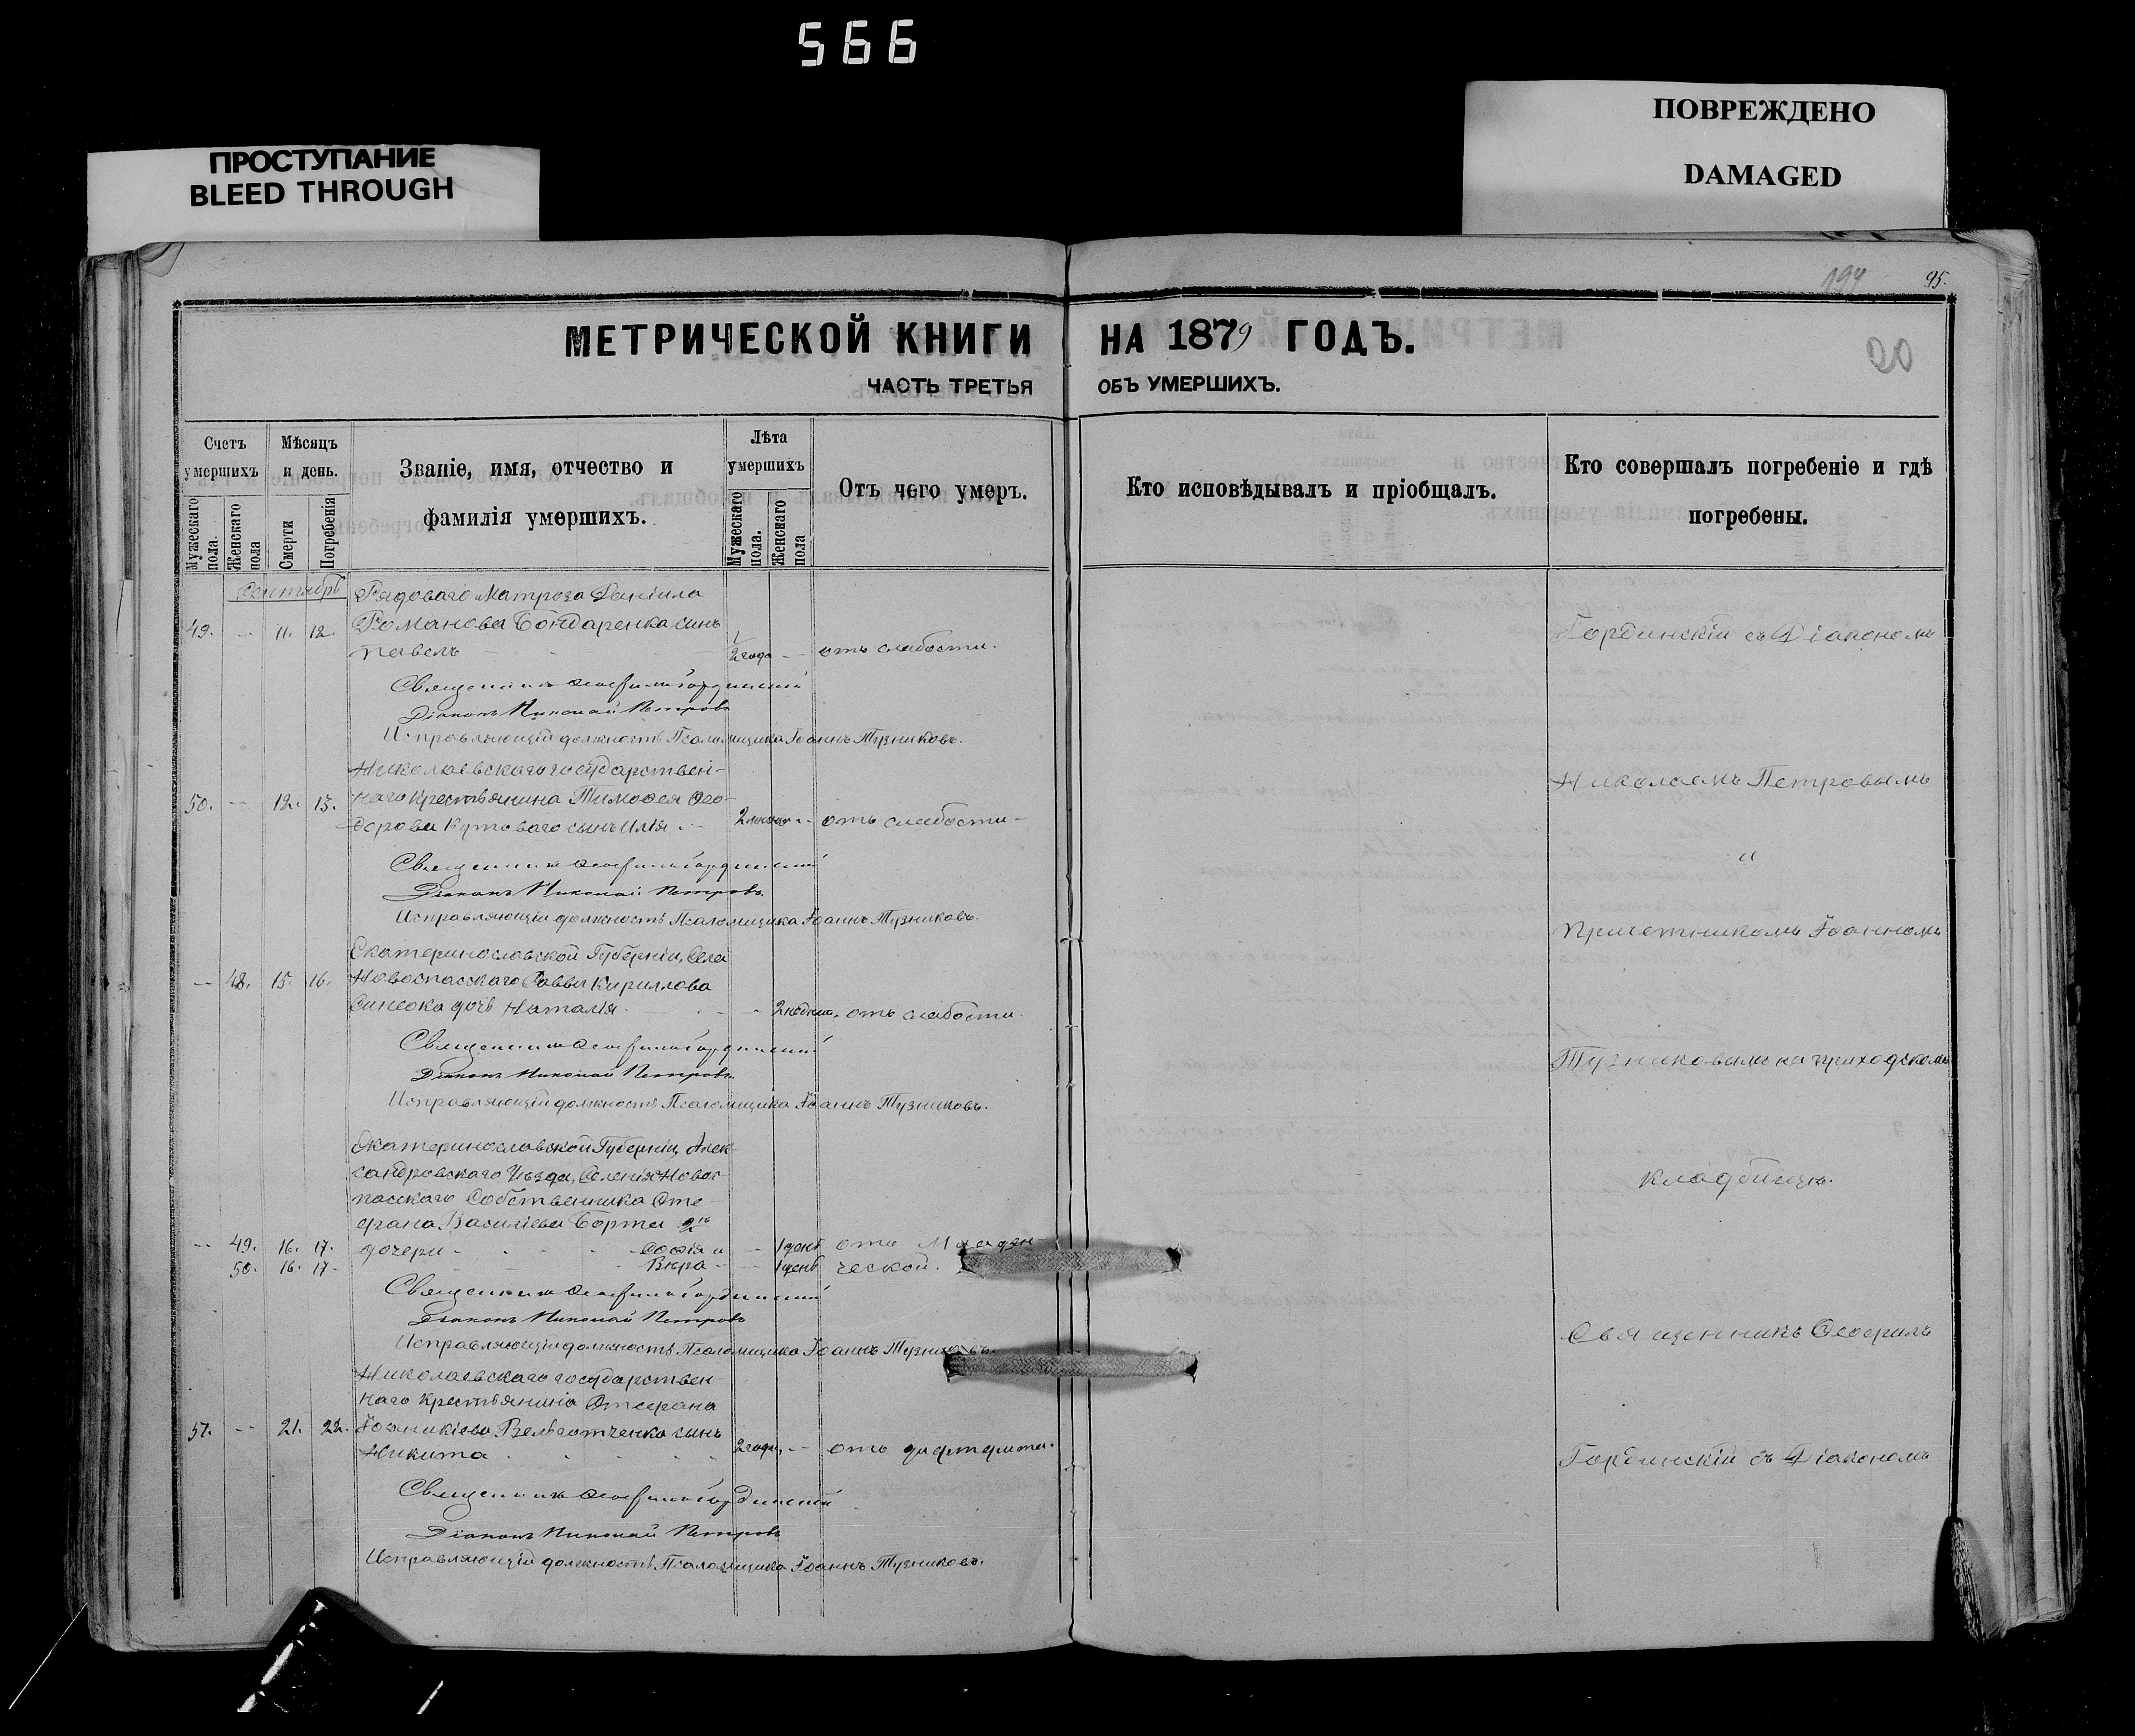 566
ПРОСТУПАНИЕ
BLEED THROUGH
ПОВРЕЖДЕНО
DAMAGED
194
95.
МЕТРИЧЕСКОЙ КНИГИ НА 1879 ГОДЪ.
20
ЧАСТЬ ТРЕТЬЯ ОБЪ УМЕРШИХЪ.
Счетъ умершихъ
Мѣсяцъ и день.
Званіе, имя, отчество и фамилія умершихъ.
Лѣта умершихъ
Отъ чего умеръ.
Кто исповѣдывалъ и пріобщалъ.
Кто совершалъ погребеніе и гдѣ погребены.
Мужескаго пола.
Женскаго пола
Смерти
Погребенія
Мужескаго пола.
Женскаго пола
Сентябрь
Рядоваго Матроза Даніила
49. -- 11. 12. Романова Бондаренка сынъ
Павелъ 1/2 года -- отъ слабости.
Священникъ Ѳеофилъ Гординскій
Діаконъ Николай Петровъ
Исправляющій должность Псаломщика Іоаннъ Тузниковъ.
Николаевскаго государствен-
50. -- 12. 13. наго крестьянина Тимоѳея Ѳео-
дорова Кутоваго сынъ Илія 2 -- отъ слабости
Священникъ Ѳеофилъ Гординскій
Діаконъ Николай Петровъ.
Исправляющій должность Псаломщика Іоаннъ Тузниковъ.
Екатеринославской Губерніи, Села
-- 48. 15. 16. Новоспасскаго Саввы Кириллова
дочь Наталія 2 отъ слабости
Священникъ Ѳеофилъ Гординскій
Діаконъ Николай Петровъ.
Исправляющій должность Псаломщика Іоаннъ Тузниковъ.
Екатеринославской Губерніи, Алек-
сандровскаго Уѣзда, Селенія Новос-
пасскаго Собственника Сте-
фана Василіева Борты 2
-- 49. 16. 17. дочери Софія и -- 1 день отъ Младен
50. 16. 17. Вѣра 1 день ческой.
Священникъ Ѳеофилъ Гординскій
Діаконъ Николай Петровъ
Исправляющій должность Псаломщика Іоаннъ Тузниковъ.
Николаевскаго государствен
наго крестьянина Стефана
51. -- 21. 22. Іоанникіева сынъ
Никита 2 года, -- отъ дифтерита.
Священникъ Ѳеофилъ Гординскій
Діаконъ Николай Петровъ
Исправляющій должность Псаломщика Іоаннъ Тузниковъ.
Гординскій съ Діакономъ
Николаемъ Петровымъ
и
Причетникомъ Іоанномъ
Тузниковымъ на приходскомъ
кладбищѣ.
Священникъ Ѳеофилъ
Гординскій съ Діакономъ